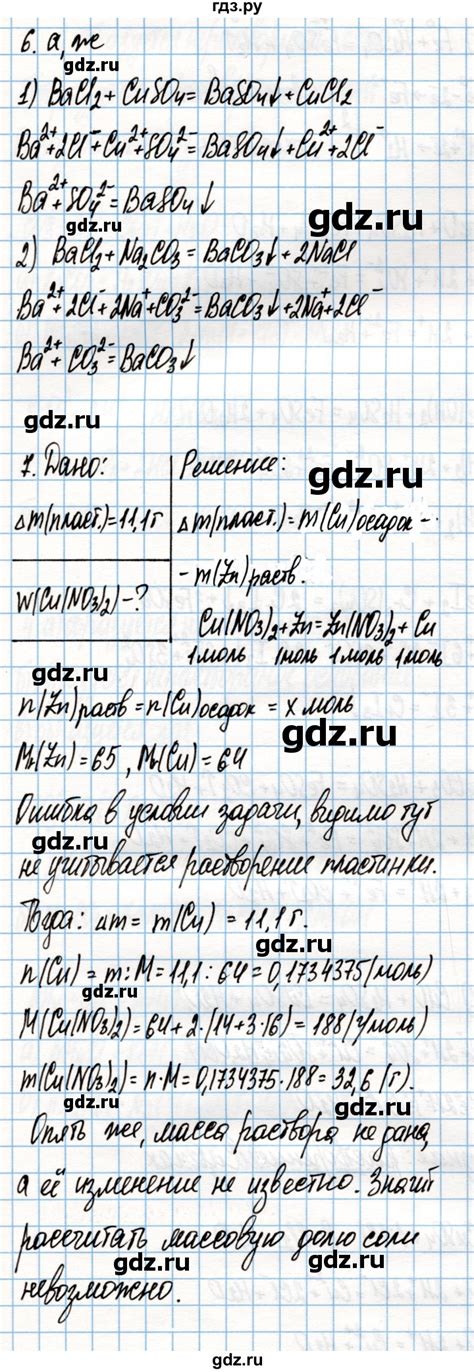 гдз.ру
6. а, ж
1) BaCl2 + CuSO4 = BaSO4↓ + CuCl2
Ba²⁺ + 2Cl⁻ + Cu²⁺ + SO4²⁻ = BaSO4↓ + Cu²⁺ + 2Cl⁻
Ba²⁺ + SO4²⁻ = BaSO4↓
gdz.ru
2) BaCl2 + Na2CO3 = BaCO3↓ + 2NaCl
Ba²⁺ + 2Cl⁻ + 2Na⁺ + CO3²⁻ = BaCO3↓ + 2Na⁺ + 2Cl⁻
gdz.ru
Ba²⁺ + CO3²⁻ = BaCO3↓
gdz.ru
7. Дано:
Δm(пласт.) = 11,1 г
W(Cu(NO3)2) - ?
Решение:
gdz.ru
Δm(пласт.) = m(Cu)осадок -
- m(Zn)раств.
Cu(NO3)2 + Zn = Zn(NO3)2 + Cu
1 моль 1 моль 1 моль 1 моль
gdz.ru
n(Zn)раств = n(Cu)осадок = x моль
gdz.ru
Mr(Zn) = 65, Mr(Cu) = 64
gdz.ru
Ошибка в условии задачи, видимо тут
gdz.ru
не учитывается растворение пластинки.
gdz.ru
Тогда: Δm = m(Cu) = 11,1 г.
gdz.ru
n(Cu) = m : M = 11,1 : 64 = 0,1734375 (моль)
gdz.ru
M(Cu(NO3)2) = 64 + 2·(14 + 3·16) = 188 (г/моль)
gdz.ru
m(Cu(NO3)2) = n·M = 0,1734375·188 = 32,6 (г).
gdz.ru
Опять же, масса раствора не дана,
gdz.ru
а её изменение не известно. Значит
gdz.ru
рассчитать массовую долю соли
gdz.ru
невозможно.
gdz.ru